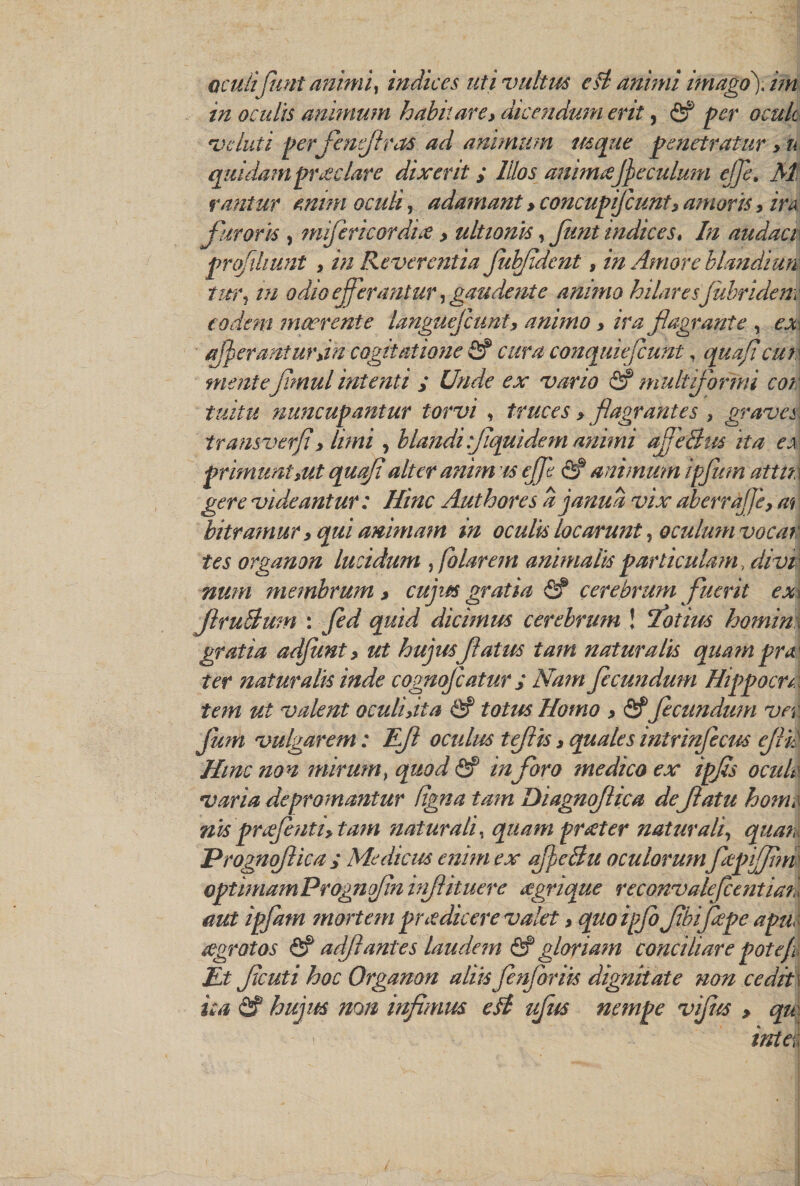 oculi ſunt animi, indices uti vultus eſt animi imago). im
in oculis animum habitare, dicendum erit, & per ocul
veluti per feneſtras ad animum usque penetratur, u
quidam præclare dixerit; Illos animæ ſpeculum eſſe. M
rantur enim oculi, adamant, concupiſcunt, amoris, iræ
furoris, miſericordiæ, ultionis, ſunt indices. In audaci
proſiliunt, in Reverentia ſubſident, in Amore blandiun
tur, in odio efferantur, gaudente animo hilares ſubrident
eodem mœrente langueſcunt, animo, ira flagrante, ex
aſperantur, in cogitatione & cura conquieſcunt, quaſi cum
mente ſimul intenti; Unde ex vario & multiformi con
tuitu nuncupantur torvi, truces, flagrantes, graves
transverſi, limi, blandi: ſiquidem animi affectus ita ex
primunt, ut quaſi alter animus eſſe & animum ipſum attin
gere videantur: Hinc Authores à januâ vix aberraſſe, ar
bitramur, qui animam in oculis locarunt, oculum vocan
tes organon lucidum, ſolarem animalis particulam, divi
num membrum, cujus gratia & cerebrum fuerit ex
ſtructum: ſed quid dicimus cerebrum! Totius homin
gratia adſunt, ut hujus ſtatus tam naturalis quam præ
ter naturalis inde cognoſcatur; Nam ſecundum Hippocra
tem ut valent oculi, ita & totus Homo, & ſecundum ver
ſum vulgarem: Eſt oculus teſtis, quales intrinſecus eſtis
Hinc non mirum, quod & in foro medico ex ipſis oculi
varia depromantur ſigna tam Diagnoſtica de ſtatu homi
nis præſenti, tam naturali, quam præter naturali, quam
Prognoſtica; Medicus enim ex aſpectu oculorum ſæpiſſim
optimam Prognoſin inſtituere ægrique reconvaleſcentiam
aut ipſam mortem prædicere valet, quo ipſo ſibi ſæpe apu
ægrotos & adſtantes laudem & gloriam conciliare poteſt
Et ſicuti hoc Organon aliis ſenſoriis dignitate non cedit
ita & hujus non infimus eſt uſus nempe viſus, qu
inte